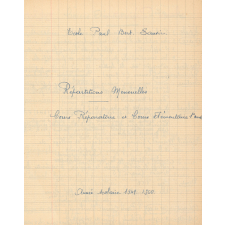 Ecole Paul Bert
Répartitions Mensuelles
Cours Préparatoire et Cours Elémentaire
Année scolaire